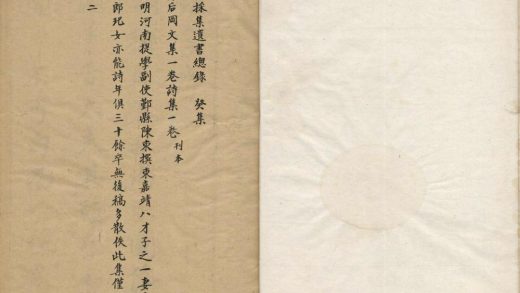 採集遺書總錄 癸集
后岡文集一卷詩集一卷刊本
明河南提學副使鄞縣陳束撰束嘉靖八才子之一妻
郎死女亦能詩年俱三十餘卒無後稿多散佚此集僅
二